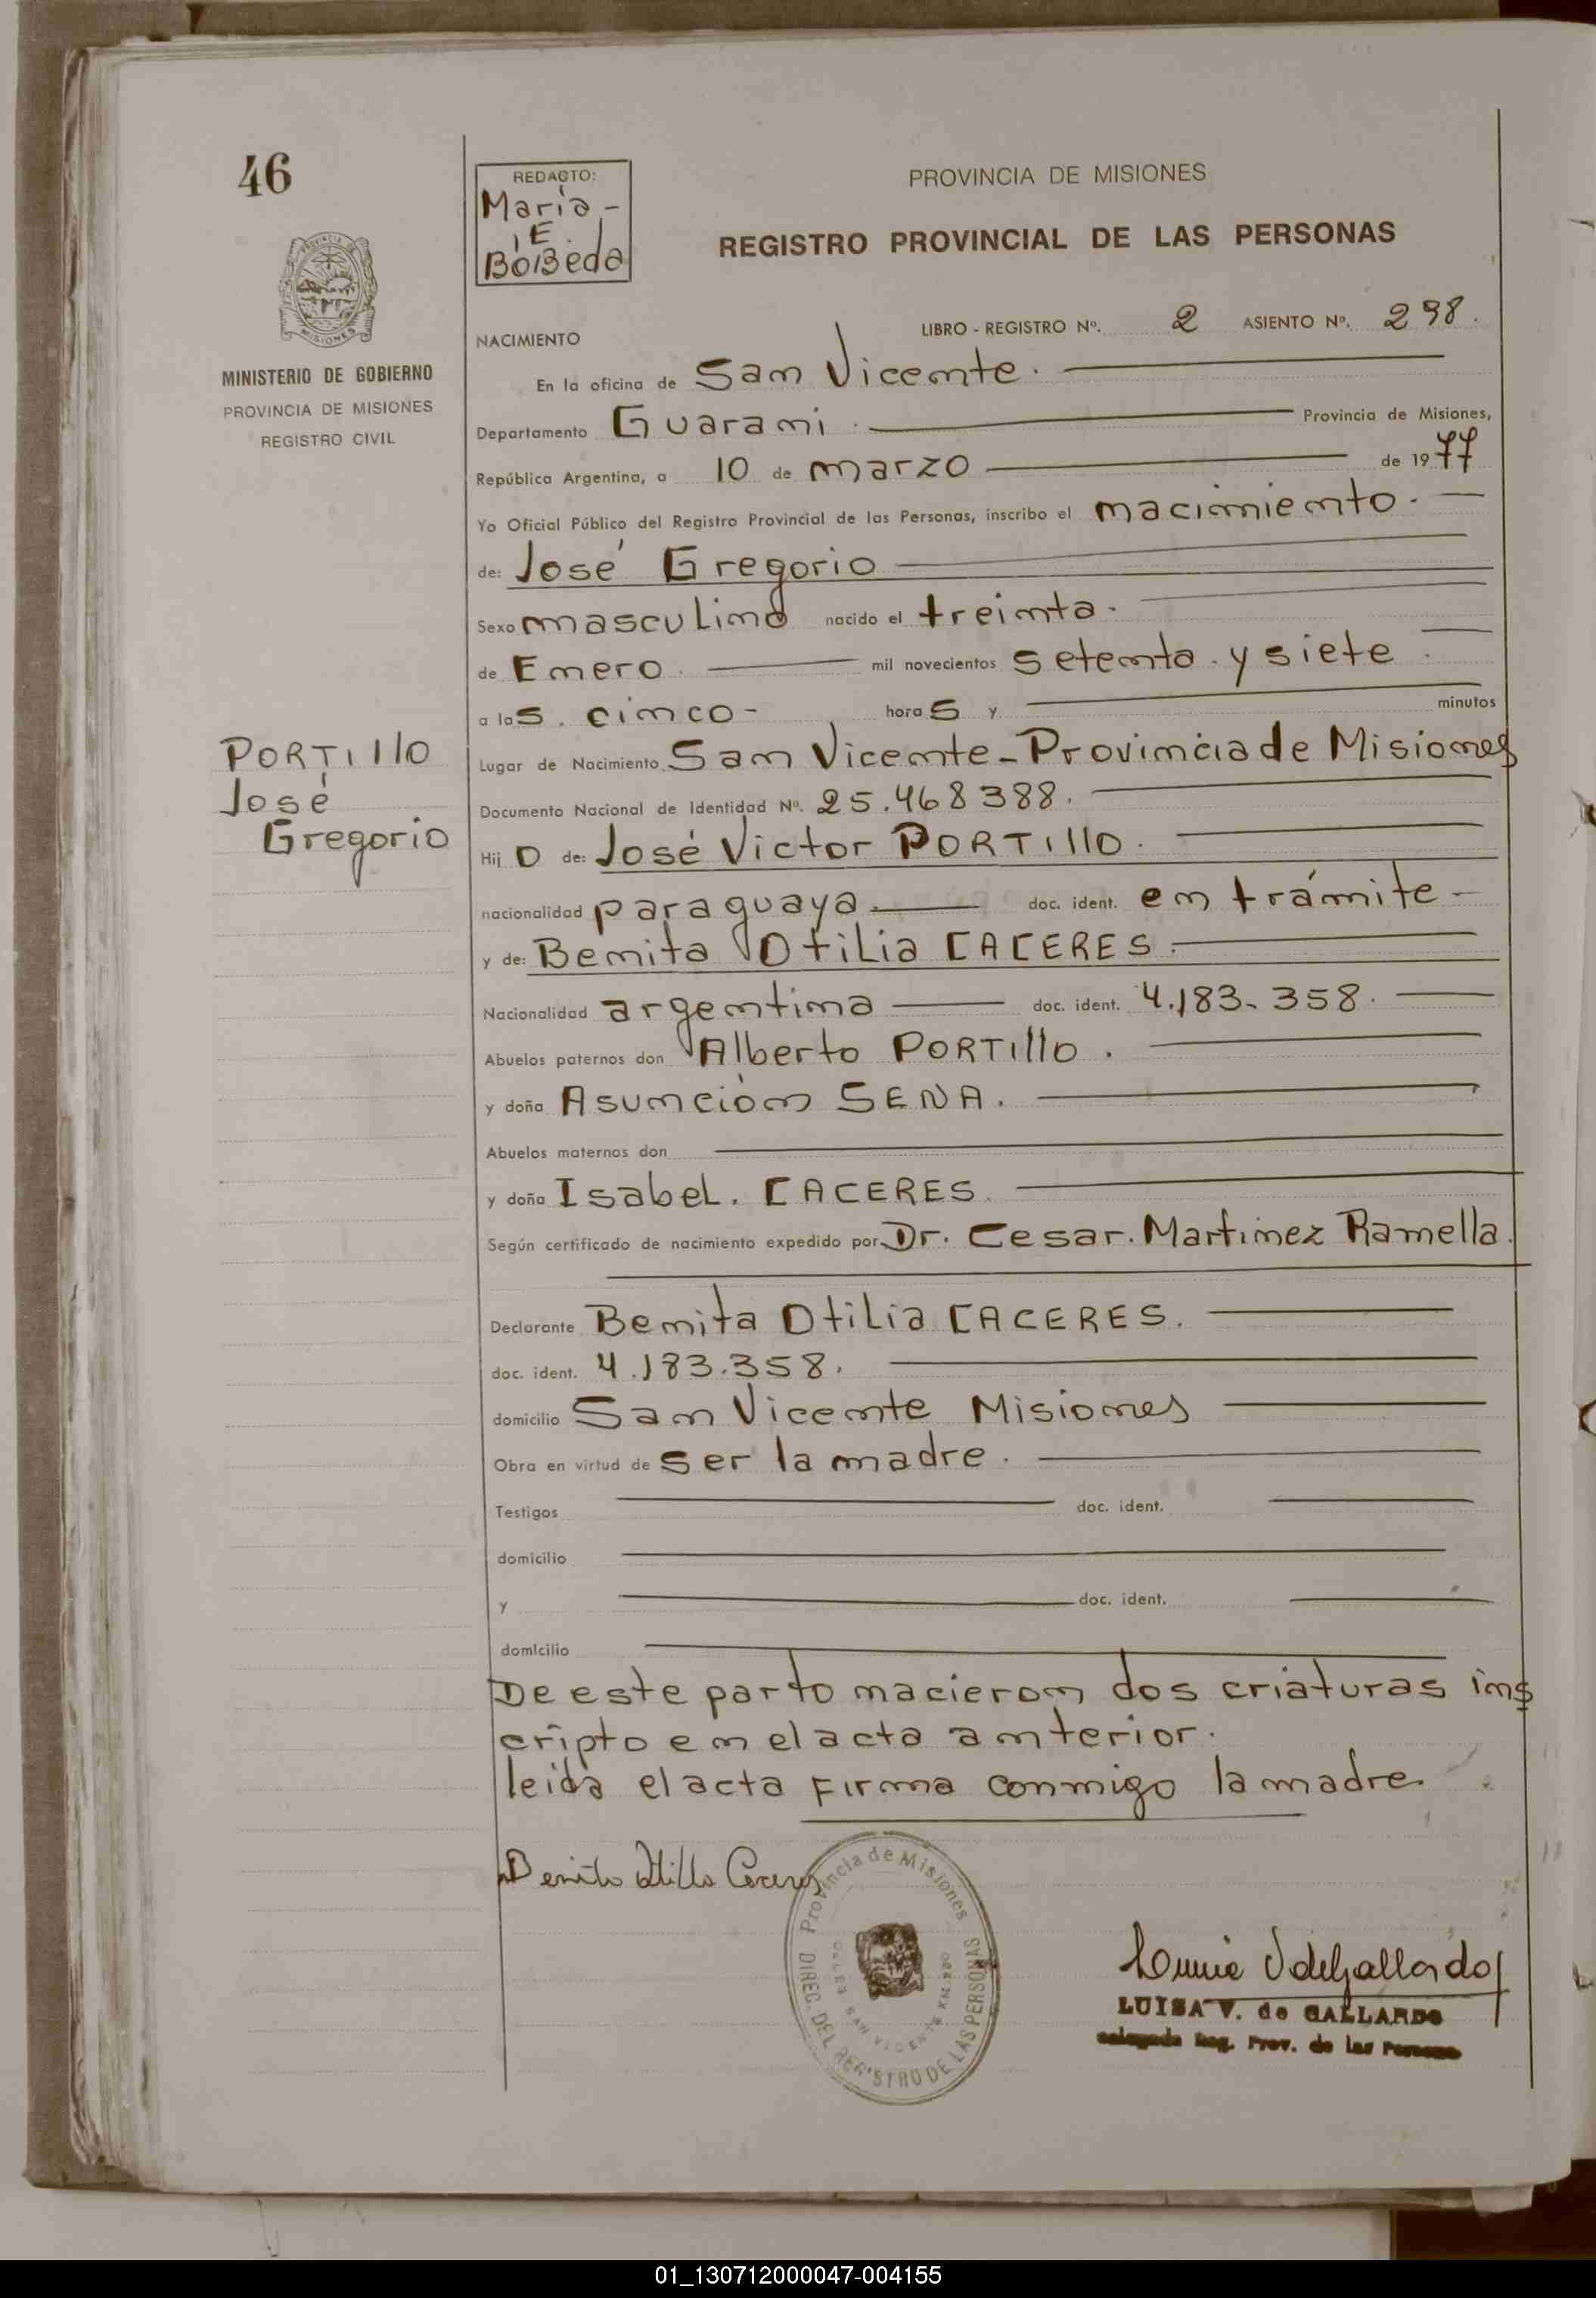 46
REDACTO:
María -
E.
BoBeda
PROVINCIA DE MISIONES
REGISTRO PROVINCIAL DE LAS PERSONAS
MINISTERIO DE GOBIERNO
PROVINCIA DE MISIONES
REGISTRO CIVIL
NACIMIENTO
LIBRO - REGISTRO Nº. 2 ASIENTO Nº. 298.
En la oficina de San Vicente.
Departamento Guarani. Provincia de Misiones,
República Argentina, a 10 de marzo de 1977
Yo Oficial Público del Registro Provincial de las Personas, inscribo el nacimiento.
de: José Gregorio
Sexo masculino nacido el treinta.
de Enero. mil novecientos setenta y siete.
a las. cinco - horas y minutos
PORTIllo
José
Gregorio
Lugar de Nacimiento San Vicente - Provincia de Misiones
Documento Nacional de Identidad Nº. 25.468388.
Hijo de: José Victor PORTIllo.
nacionalidad paraguaya. doc. ident. en trámite -
y de: Benita Otilia CACERES.
Nacionalidad argentina doc. ident. 4.183-358.
Abuelos paternos don Alberto PORTIllo.
y doña Asunción SENA.
Abuelos maternos don
y doña Isabel. CACERES.
Según certificado de nacimiento expedido por Dr. Cesar. Martinez Ramella.
Declarante Benita Otilia CACERES.
doc. ident. 4.183.358.
domicilio San Vicente Misiones
Obra en virtud de ser la madre.
Testigos doc. ident.
domicilio
y doc. ident.
domicilio
De este parto nacieron dos criaturas ins
cripto en el acta anterior.
leida el acta firma conmigo la madre.
Benita Otilia Caceres
Provincia de Misiones
DIREC. DEL REGISTRO DE LAS PERSONAS
SAN VICENTE
V de Gallardo
LUISA V. de GALLARDO
Reg. Prov. de las
01_130712000047-004155